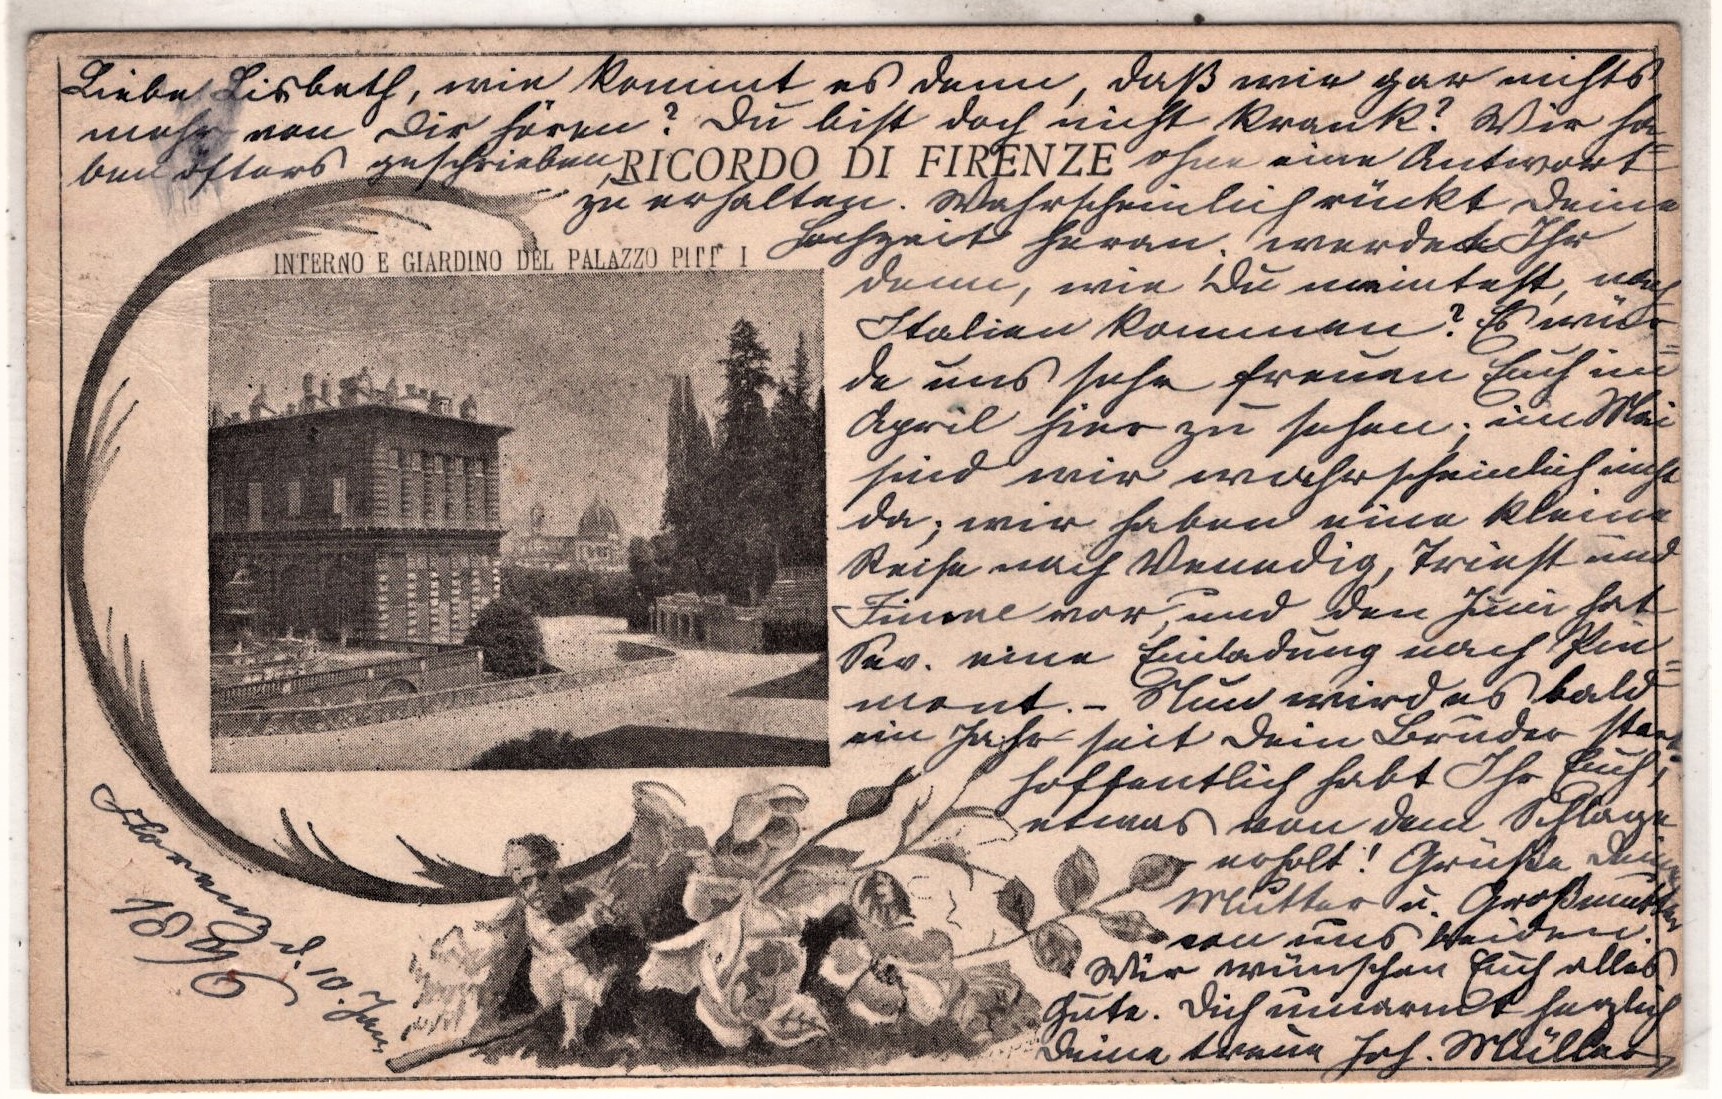 Liebe Lisbeth, wie kommt es denn, daß wir gar nichts
mehr von Dir hören? Du bist doch nicht krank? Wir ha-
ben öfters geschrieben, ohne eine Antwort
RICORDO DI FIRENZE
zu erhalten. Wahrscheinlich rückt Deine
Hochzeit heran; werdet Ihr
INTERNO E GIARDINO DEL PALAZZO PITTI
denn, wie Du meintest, nach
Italien kommen? Es wür=
de uns sehr freuen Euch im
April hier zu sehen; im Mai
sind wir wahrscheinlich nicht
da; wir haben eine kleine
Reise nach Venedig, Triest und
Fiume vor, und den Juni hat
eine Einladung nach Pie=
mont. – Nun wird es bald
ein Jahr seit Dein Bruder
hoffentlich habt Ihr Euch
etwas von dem Schlage
erholt! Grüße Deine
Mutter u. Großmutter
von uns beiden.
Wir wünschen Euch alles
Gute. Dich umarmt herzlich
Deine treue Joh. Müller
Florenz d. 10. Jan.
1896